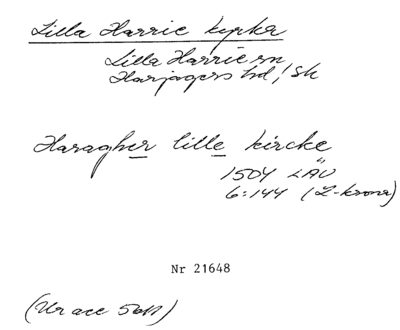 Lilla Harrie kyrka
Lilla Harrie sn
Harjagers hd, Sk
Haragher lille kircke
1504 LÄU
6:144 (L-krona)
Nr 21648
(Ur acc 5611)